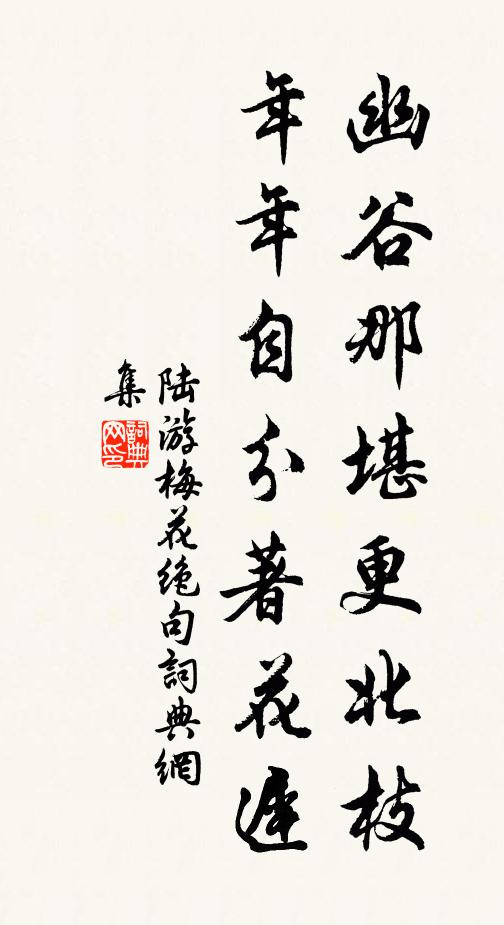 幽谷那堪更北枝
年年自分著花遲
陸游梅花绝句詞典網
集
詞典
网印